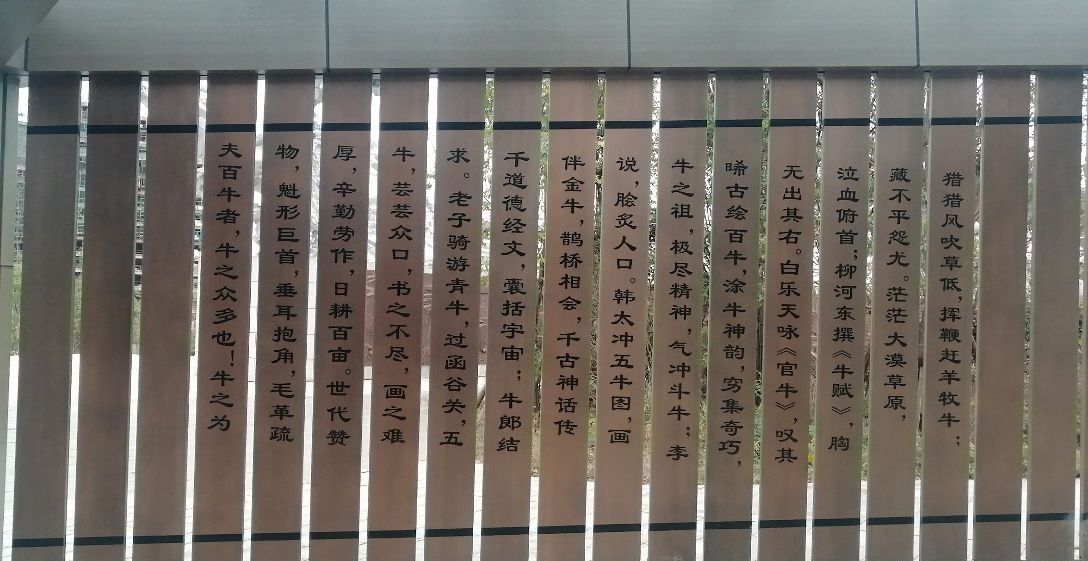 夫百牛者，牛之众多也！牛之为
物，魁形巨首，垂耳抱角，毛革疏
厚，辛勤劳作，日耕百亩。世代赞
牛，芸芸众口，书之不尽，画之难
求。老子骑游青牛，过函谷关，五
千道德经文，囊括宇宙；牛郎结
伴金牛，鹊桥相会，千古神话传
说，脍炙人口。韩太冲五牛图，画
牛之祖，极尽精神，气冲斗牛；李
晞古绘百牛，涂牛神韵，穷集奇巧，
无出其右。白乐天咏《官牛》，叹其
泣血俯首；柳河东撰《牛赋》，胸
藏不平怨尤。茫茫大漠草原，
猎猎风吹草低，挥鞭赶羊牧牛；